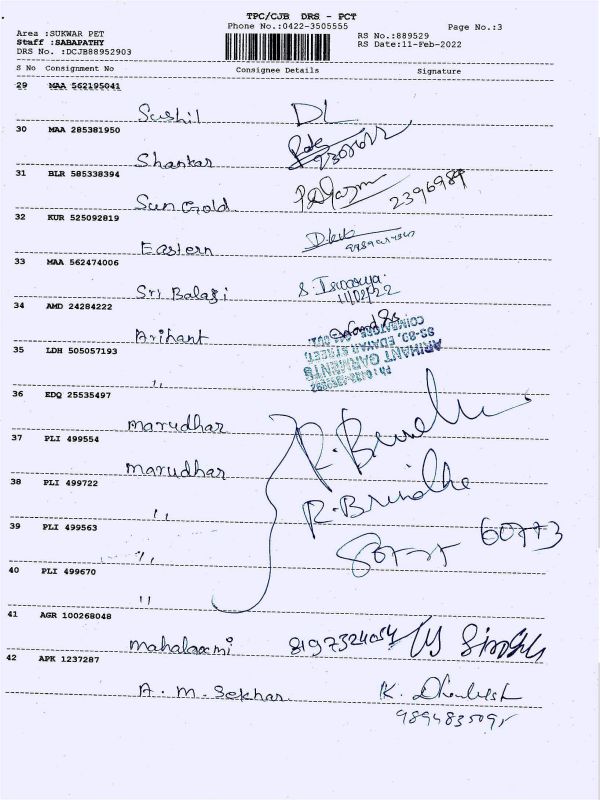 TPC/CJB DRS - PCT
Phone No.:0422-3505555
Page No.:3
Area :SUKWAR PET
Staff :SABAPATHY
DRS No. :DCJB88952903
RS No.:889529
RS Date:11-Feb-2022
S No Consignment No Consignee Details Signature
29 MAA 562195041
Sushil DL
30 MAA 285381950
Shankar
31 BLR 585338394
Sun Gold 2396989
32 KUR 525092819
Eastern
33 MAA 562474006
Sri Balaji S. Iswarya.
11/02/22
34 AMD 24284222
Arihant
ARIHANT GARMENTS
SS-80, EDAYAR STREET,
COIMBATORE
35 LDH 505057193
,,
36 EDQ 25535497
Marudhar R. Brindha
37 PLI 499554
Marudhar
38 PLI 499722
,, R. Brindha
39 PLI 499563
,,
40 PLI 499670
,,
41 AGR 100268048
Mahalaxmi 8197324054
42 APK 1237287
A. M. Sekhar K. Dhanlesh